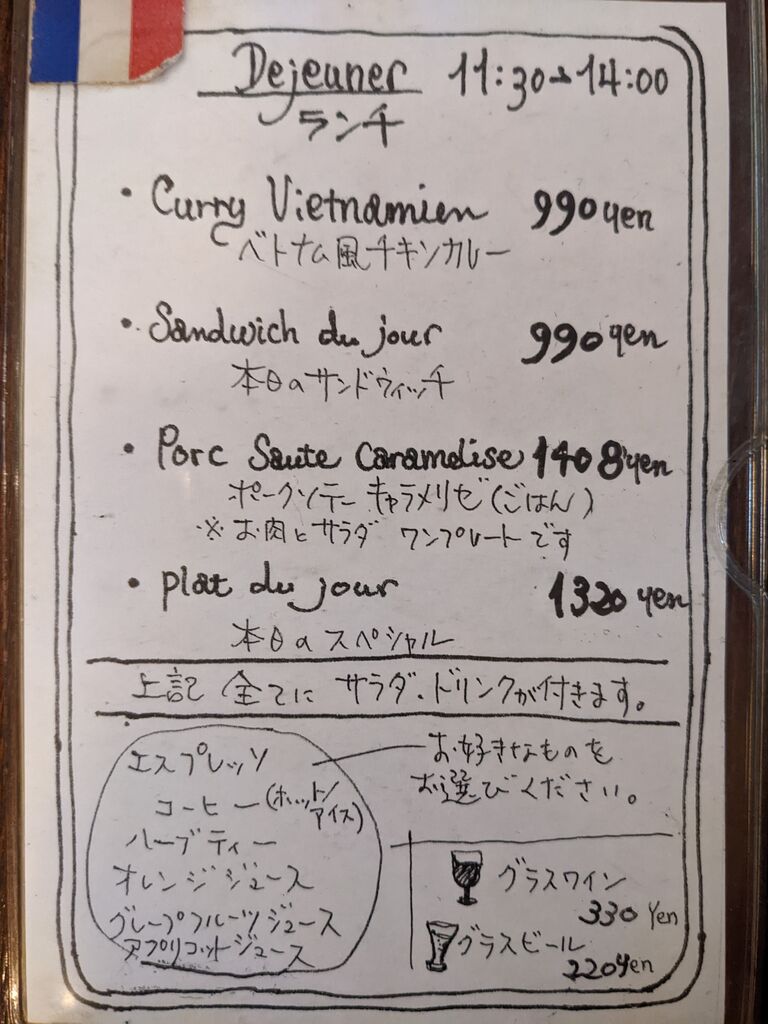 Dejeuner 11:30→14:00
ランチ
・Curry Vietnamien 990yen
ベトナム風チキンカレー
・Sandwich du jour 990yen
本日のサンドウィッチ
・Porc Saute Caramelise 1408yen
ポークソテー キャラメリゼ(ごはん)
※お肉とサラダ ワンプレートです
・plat du jour 1320yen
本日のスペシャル
上記 全てに サラダ・ドリンクが付きます。
お好きなものを
お選びください。
エスプレッソ
コーヒー(ホット/アイス)
ハーブティー
オレンジジュース
グレープフルーツジュース
アプリコットジュース
グラスワイン
330 Yen
グラスビール
220yen